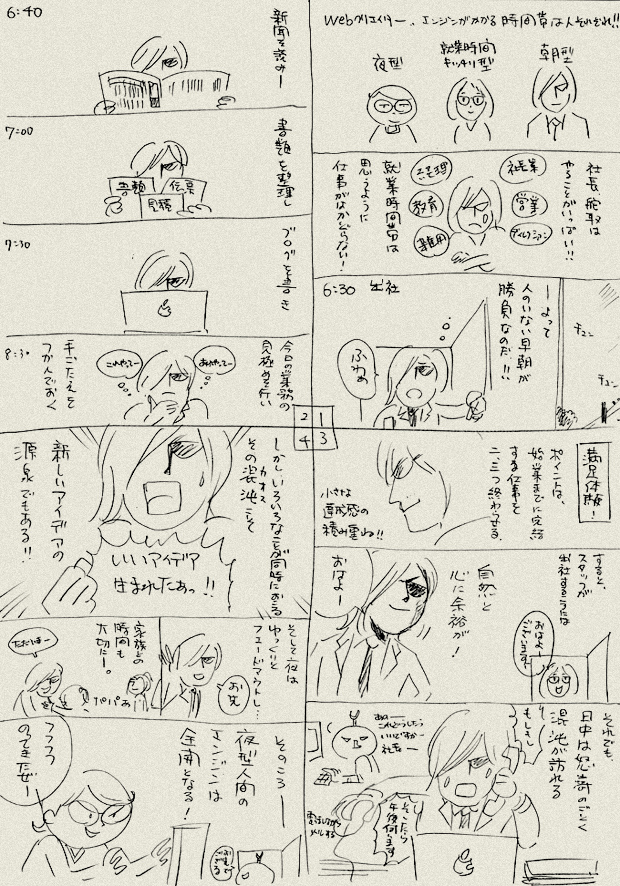 Webクリエイター、エンジンがかかる時間帯は人それぞれ!!
朝型
就業時間
キッチリ型
夜型
社長、舵取は
やることがいっぱい!!
社長業
営業
ディレクション
経理
教育
雑用
就業時間帯は
思うように
仕事がはかどらない!
6:30 出社
チュン
チュン
ーよって
人のいない早朝が
勝負なのだ!!
ふわぁ
1
2
3
4
6:40
新聞を読みー
7:00
書類を整理し
書類
伝票
見積
7:30
ブログを書き
8:30
今日の業務の
見極めを行い
あれやってー
これやってー
手ごたえを
つかんでおく
満足体験!
ポイントは、
始業までに完結
する仕事を
二、三つ終わらせる。
小さな
達成感の
積み重ね!!
すると、
スタッフが
出社するころには
おはよー
ございます!
自然と
心に余裕が!
おはよー
それでも、
日中は怒涛のごとく
混沌が訪れる
もしもし
あのー
これどうしたら
いいですかー
社長ー
午後伺います
電話しながら
メールする
しかし、いろいろなことが同時におこる
その混沌こそ
カオス
新しいアイデアの
源泉でもある!!
いいアイデア
生まれたぁっ!!
そして夜は
ゆっくりと
フェードアウトし…
お先
家族との
時間も
大切にー。
パパぁ
ただいまー
そのころー
夜型人間の
エンジンは
全開となる!
フフフフ
のってきたぜー